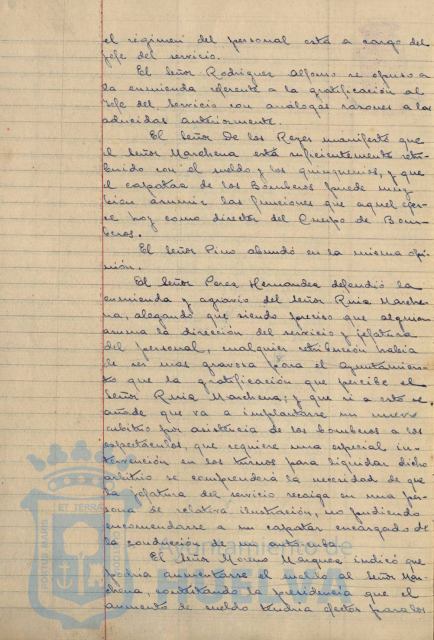 el régimen del personal está a cargo del
jefe del servicio.
El Señor Rodriguez Alfonso se opuso a
la enmienda referente a la gratificación al
Jefe del Servicio con análogas razones a las
aducidas anteriormente.
El Señor De los Reyes manifestó que
el Señor Marchena está suficientemente retri-
buido con el sueldo y los quinquenios, y que
el capataz de los Bomberos puede muy
bien asumir las funciones que aquel ejer-
ce hoy como director del Cuerpo de Bom-
beros.
El Señor Pino abundó en la misma opi-
nión.
El Señor Perez Hernandez defendió la
enmienda y agravio del Señor Ruiz Marche-
na, alegando que siendo preciso que alguien
asuma la dirección del servicio y jefatura
del personal, cualquier retribución habia
de ser mas gravosa para el Ayuntamien-
to que la gratificación que percibe el
Señor Ruiz Marchena; y que si a esto se
añade que va a implantarse un nuevo
arbitrio por asistencia de los bomberos a los
espectáculos, que requiere una especial in-
tervención en los turnos para liquidar dicho
arbitrio se comprenderá la necesidad de que
la jefatura del servicio recaiga en una per-
sona de relativa ilustración, no pudiendo
encomendarse a un capataz encargado de
la conducción de un auto-cuba.
El Señor Moreno Marquez indicó que
podria aumentarse el sueldo al Señor Mar-
chena, contestando la presidencia que el
aumento de sueldo tendria efectos para los
PORTUS MARIS
ET TERRAE
Ayuntamiento de